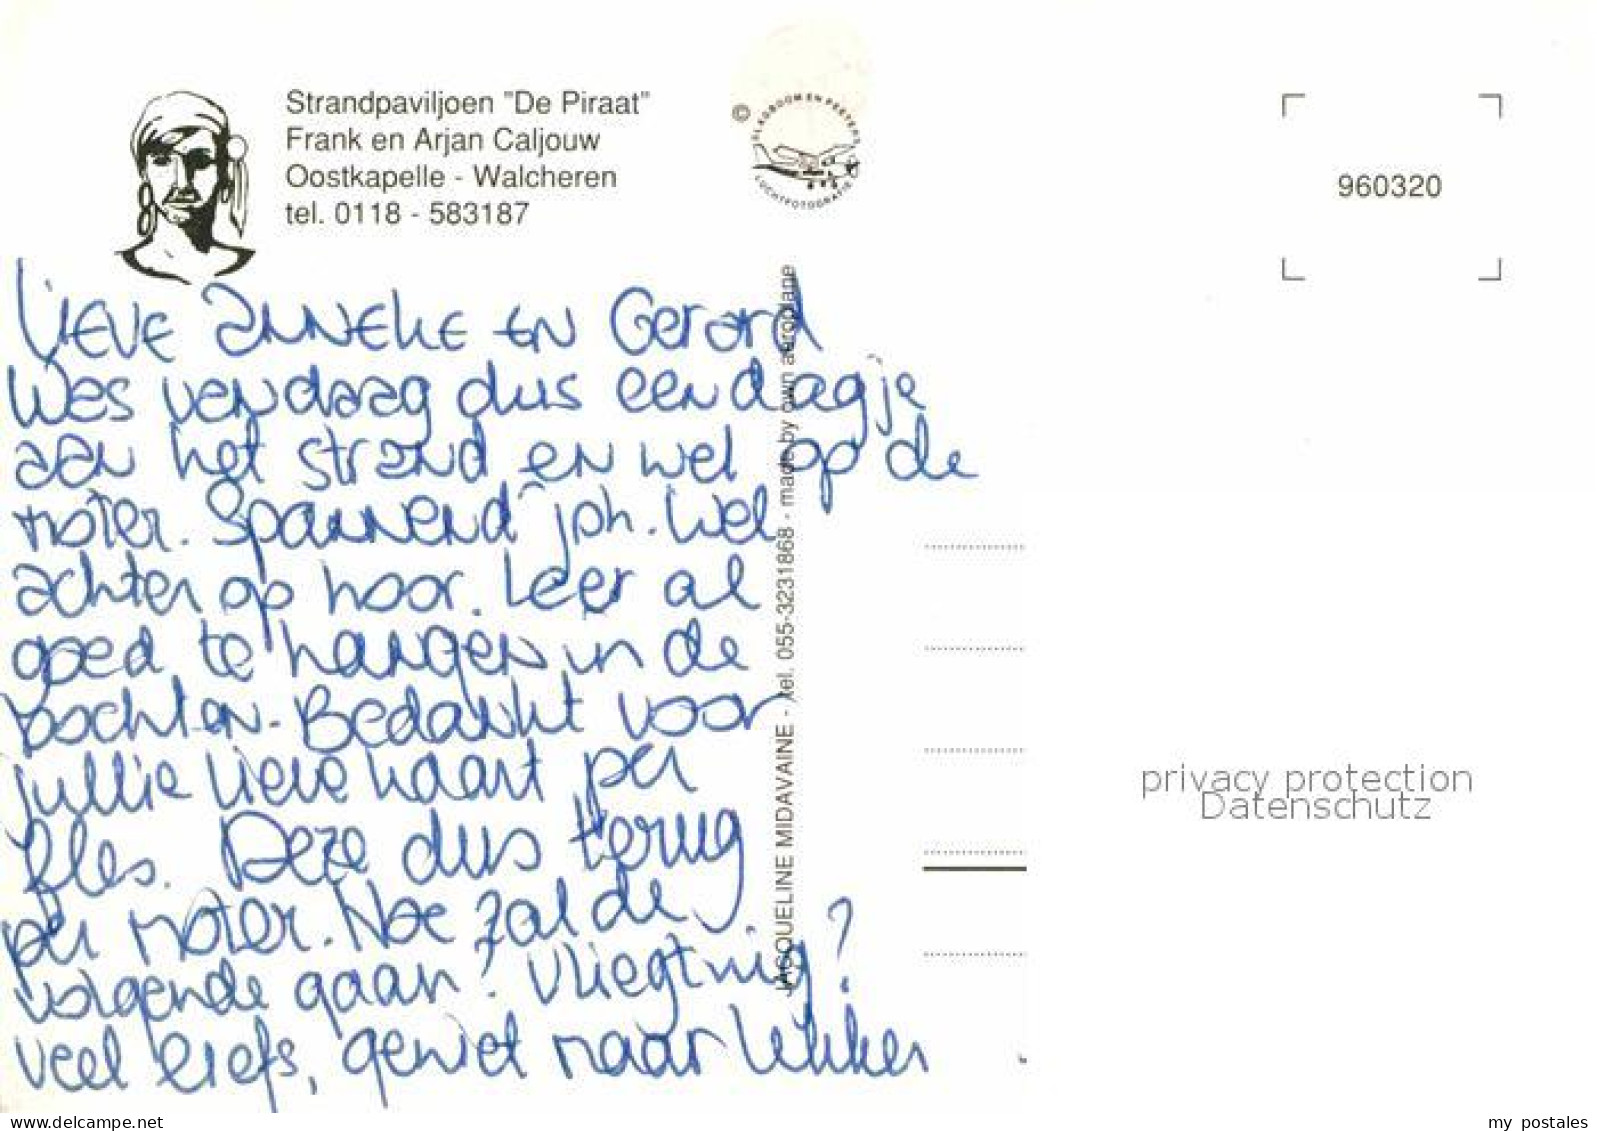 Strandpaviljoen "De Piraat"
Frank en Arjan Caljouw
Oostkapelle - Walcheren
tel. 0118 - 583187
©
SLAGBOOM EN PEETERS
LUCHTFOTOGRAFIE
960320
Lieve Anneke en Gerard
Was vandaag dus een dagje
aan het strand en wel op de
moter. Spannend joh. Wel
achter op hoor. Leer al
goed te hangen in de
bochten. Bedankt voor
jullie lieve kaart per
fles. Deze dus terug
per moter. Hoe zal de
volgende gaan? Vliegtuig?
veel liefs, geniet maar lekker
JACQUELINE MIDAVAINE - tel. 055-3231868 - made by own aeroplane
privacy protection
Datenschutz
delcampe.net
my_postales